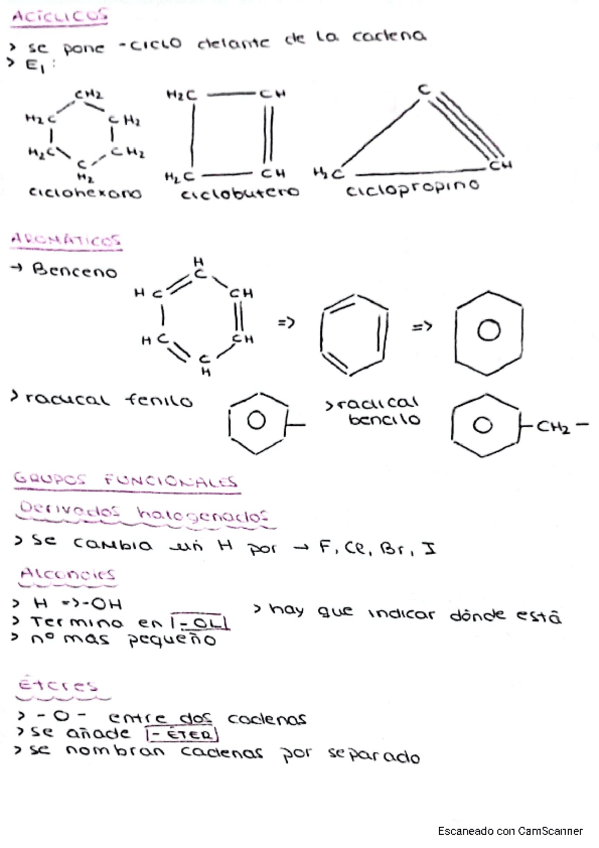 ACÍCLICOS
> se pone -CICLO delante de la cadena
> Ej:
CH2
H2C CH2
H2C CH2
C
H2
ciclohexano
H2C CH
H2C CH
ciclobuteno
C
H2C CH
ciclopropino
AROMÁTICOS
→ Benceno
H
C
HC CH
HC CH
C
H
=>
=>
> radical fenilo
> radical
bencilo
-CH2-
GRUPOS FUNCIONALES
Derivados halogenados
> Se cambia un H por → F, Cl, Br, I
Alcoholes
> H => -OH
> Termino en -OL
> nº mas pequeño
> hay que indicar dónde está
Éteres
> -O- entre dos cadenas
> se añade -ÉTER
> se nombran cadenas por separado
Escaneado con CamScanner